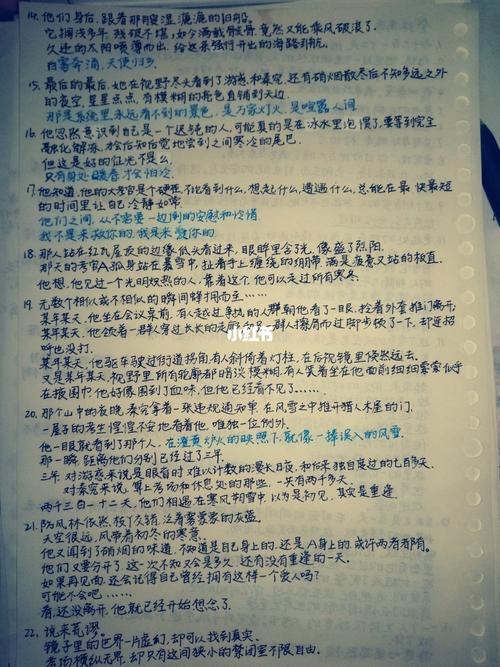 14. 他们身后，跟着那艘湿漉漉的旧船。
它搁浅多年，残破不堪，如今满载骸骨，竟然又能乘风破浪了。
久违的太阳喷薄而出，给这条强行开出的海路引航。
白雾奔涌，天使归乡。
15. 最后的最后，她在视野尽头看到了游惑和秦究，还有硝烟散尽后不知多远之外
的夜空，星星点点，有模糊的亮色直铺到天边。
那是系统里永远看不到的景色，是万家灯火，是喧嚣人间。
16. 他忽然意识到自己是一个迟钝的人，可能真的是在冰水里泡惯了，要等到完全
融化解冻，才会后知后觉地尝到之间寒冷的尾巴。
但这是好的征兆不是么。
只有身处暖春才会怕冷。
17. 他知道，他的大考官是个硬茬，不论看到什么，想起什么，遭遇什么，总能在最快最短
的时间里让自己冷静如常。
他们之间，从不需要一边倒的安慰和冷稽
我不是来救你的，我是来爱你的
18. 那人站在红瓦屋顶的边缘低头看过来，眼眸里含了光，像盛了烈阳。
那天的考官A孤身站在暴雪中，拉着手上缠绕的绷带，满是疲惫又站的极直。
他想，他见过一个光明炽热的人，靠着这个，他可以走过所有寒冬。
19. 无数个相似或不相似的瞬间蜂拥而至……
某年某天，他坐在会议桌前，有人越过争执的人群朝他看了一眼，拎着外套推门离开；
某年某天，他领着一群人穿过长长的走廊，另一群人擦肩而过脚步顿了一下，却连招
呼也没打。
某年某天，他驱车驶过街道拐角，有人斜倚着灯柱，在后视镜里倏然远去。
又是某年某天，视野里所有轮廓都暗淡模糊，有人笑着坐在他面前细细索索似乎
在抠图？他好像闻到了血味，但他已经看不见了……
20. 那个山中的夜晚，秦究拿着一张违规通知单，在风雪之中推开猎人木屋的门。
一屋子的考生惶惶不安也看着他，唯独一位例外。
他一眼就看到了那个人，在渣黄炉火的映照下，就像一捧误入的风雪。
那一瞬，距离他们分别已经过了三年。
三年，对游惑来说是眼盲时难以计数的漫长日夜，和后来独自度过的七百多天。
对秦究来说，算上考场和休息处的那些，一共有两千多天。
两千三百一十二天，他们相遇在寒风朔雪中，以为是初见，其实是重逢。
21. 防风林依然，枝丫交错，泛着雾蒙蒙的灰蓝。
天空很远，风带着初冬的寒意。
他又闻到了硝烟的味道，不知道是自己身上的，还是A身上的，或许两者都有。
他们又要分开了，这一次不知又会是多久，还有没有重逢的一天。
如果再见面，还会记得自己曾经拥有这样一个爱人吗？
可能不会吧……
看，还没离开，他就已经开始想念了。
22. 说来荒谬。
镜子里的世界一片虚幻，却可以找到真实。
考场横纵无界，却只有这间狭小的禁闭室不限自由。
小红书